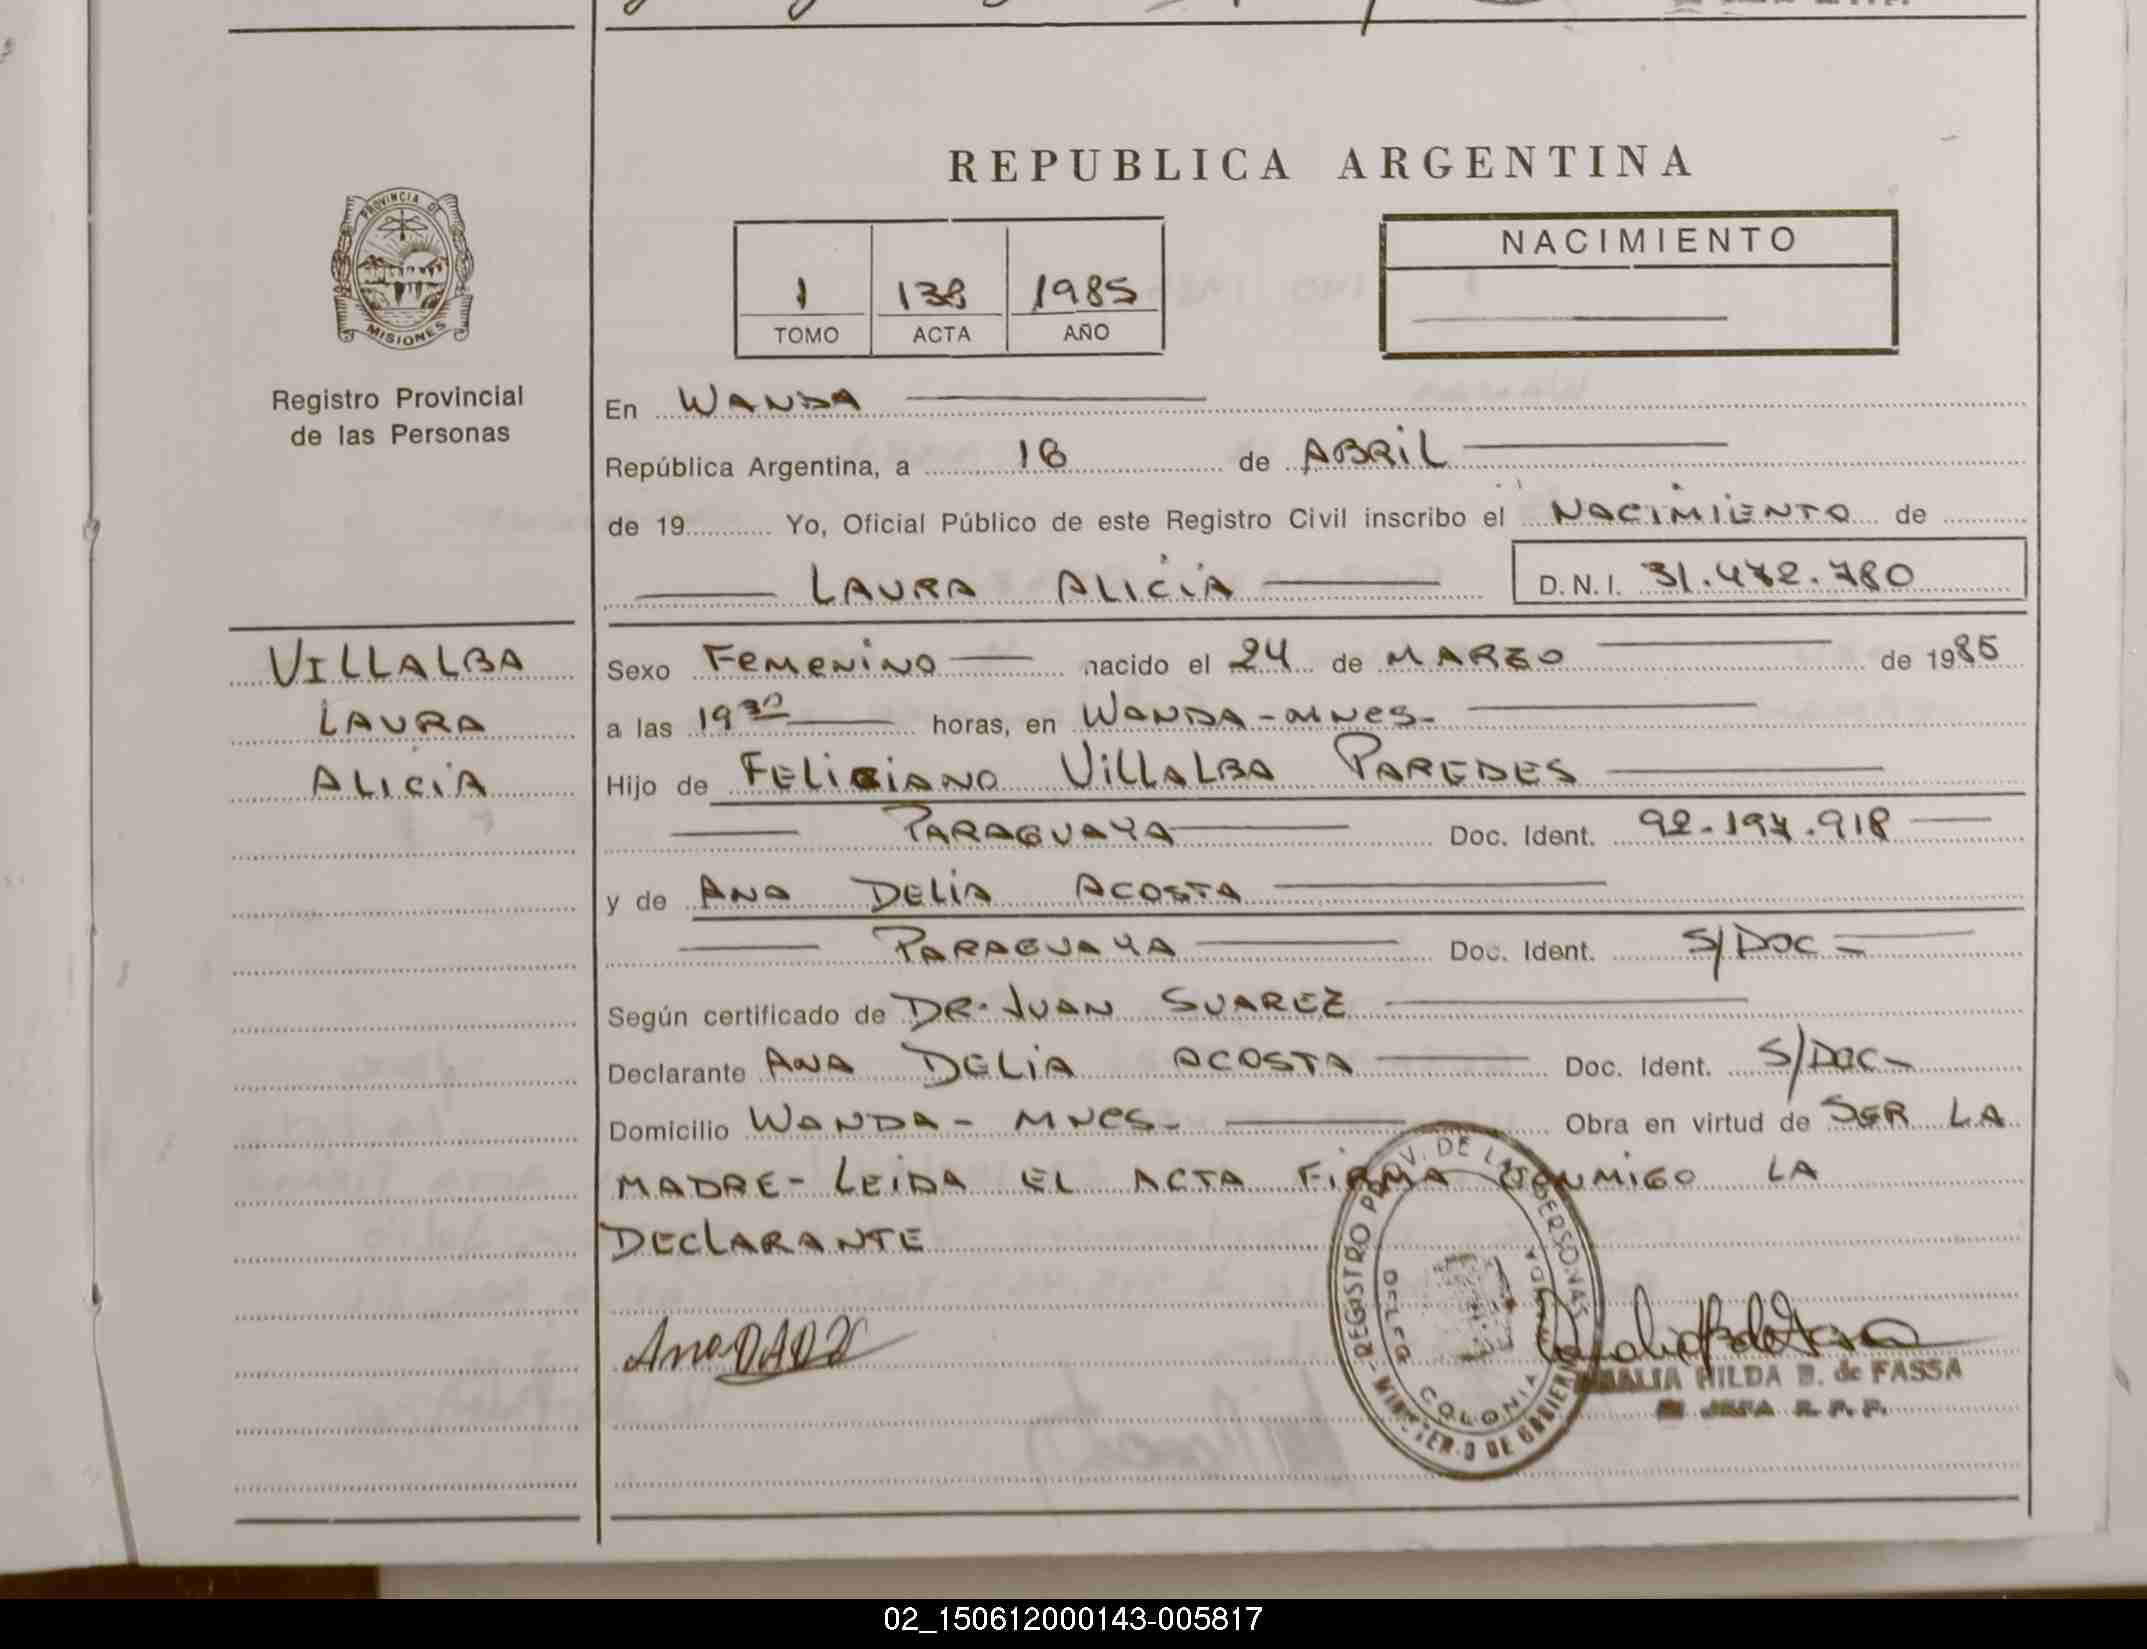 REPUBLICA ARGENTINA
PROVINCIA DE
MISIONES
Registro Provincial
de las Personas
1 138 1985
TOMO ACTA AÑO
NACIMIENTO
En WANDA
República Argentina, a 18 de ABRIL
de 19 Yo, Oficial Público de este Registro Civil inscribo el NACIMIENTO de
LAURA ALICIA D.N.I. 31.472.780
VILLALBA
LAURA
ALICIA
Sexo FEMENINO nacido el 24 de MARZO de 1985
a las 19 30 horas, en WANDA-MNES-
Hijo de FELICIANO VILLALBA PAREDES
PARAGUAYA Doc. Ident. 92.197.918
y de ANA DELIA ACOSTA
PARAGUAYA Doc. Ident. S/DOC-
Según certificado de DR. JUAN SUAREZ
Declarante ANA DELIA ACOSTA Doc. Ident. S/DOC-
Domicilio WANDA- MNES- Obra en virtud de SER LA
MADRE- LEIDA EL ACTA FIRMA CONMIGO LA
DECLARANTE
REGISTRO PROV. DE LAS PERSONAS
MINISTERIO DE GOBIERNO
DELEG
COLONIA WANDA
AMALIA HILDA B. de FASSA
JEFA R. P. P.
02_150612000143-005817